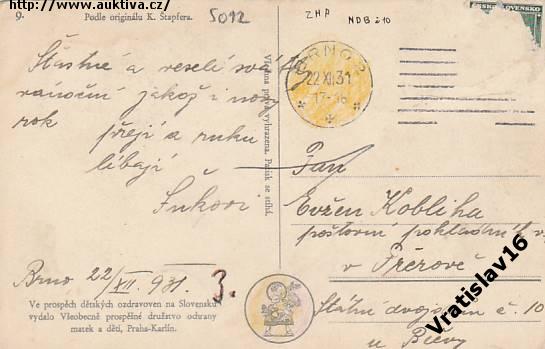 http://www.auktiva.cz/
9.
Podle originálu K. Štapfera.
5012
ZHP
NDB 210
ČESKOSLOVENSKO
BRNO 5
22.XII.31
17-18
Šťastné a veselé svátky
vánoční jakož i nový
rok
přejí a ruku
líbají
Brno 22/XII. 931.
3.
Ve prospěch dětských ozdravoven na Slovensku
vydalo Všeobecně prospěšné družstvo ochrany
matek a dětí, Praha-Karlín.
Všechna práva vyhrazena. Padělek se stíhá.
Pan
Evžen Kobliha
poštovní pokladní
v Přerově
Státní č. 10
u Bečvy
Vratislav16